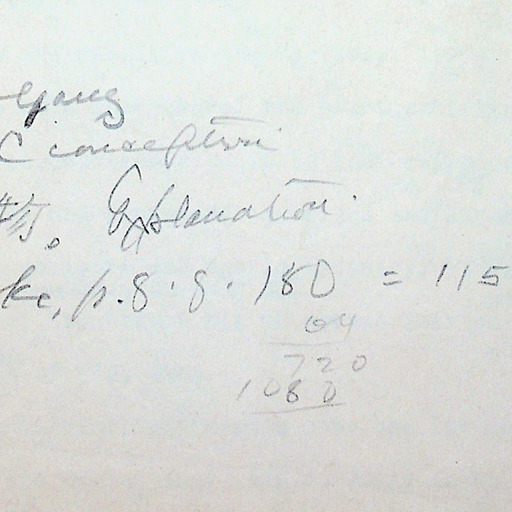 gang
C conception
#5. Explanation.
ke, p. 8. g. 180 = 115
64
720
1080